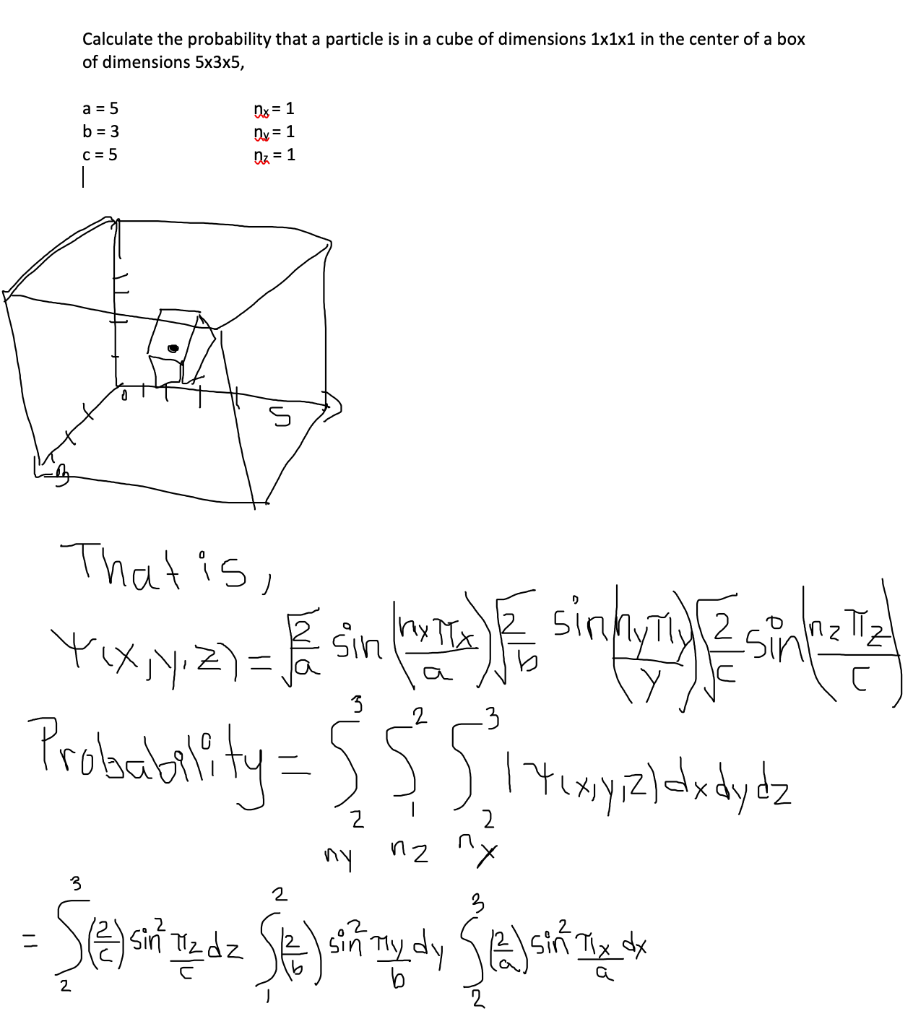 Calculate the probability that a particle is in a cube of dimensions 1x1x1 in the center of a box
of dimensions 5x3x5,
a = 5 nx = 1
b = 3 ny = 1
c = 5 nz = 1
0 5
3
That is,
Ψ(x,y,z) = √(2/a) sin(nxπx/a) √(2/b) sin(nyπy/y) √(2/c) sin(nzπz/c)
Probability = ∫₂³ ∫₁² ∫₂³ |Ψ(x,y,z)dxdydz
ny nz nx
= ∫₂³ (2/c) sin² πz/c dz ∫₁² (2/b) sin² πy/b dy ∫₂³ (2/a) sin² πx/a dx